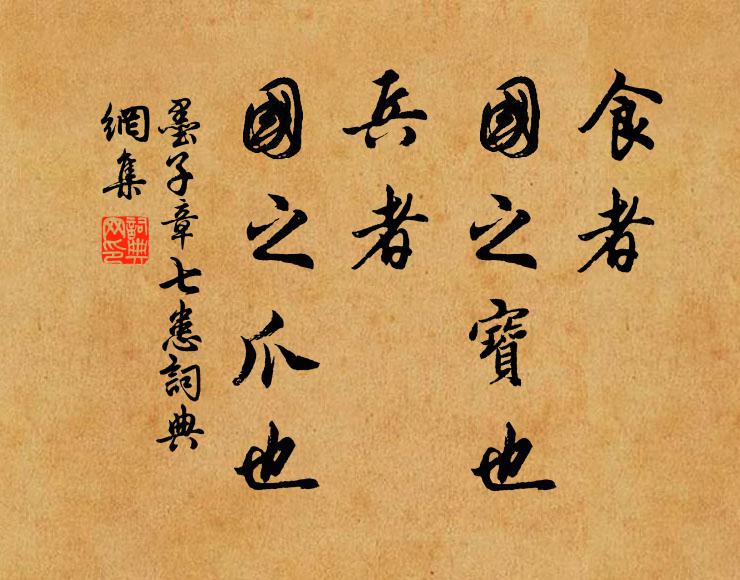 食者
國之寶也
兵者
國之爪也
墨子章七患詞典
網集
詞典
网印